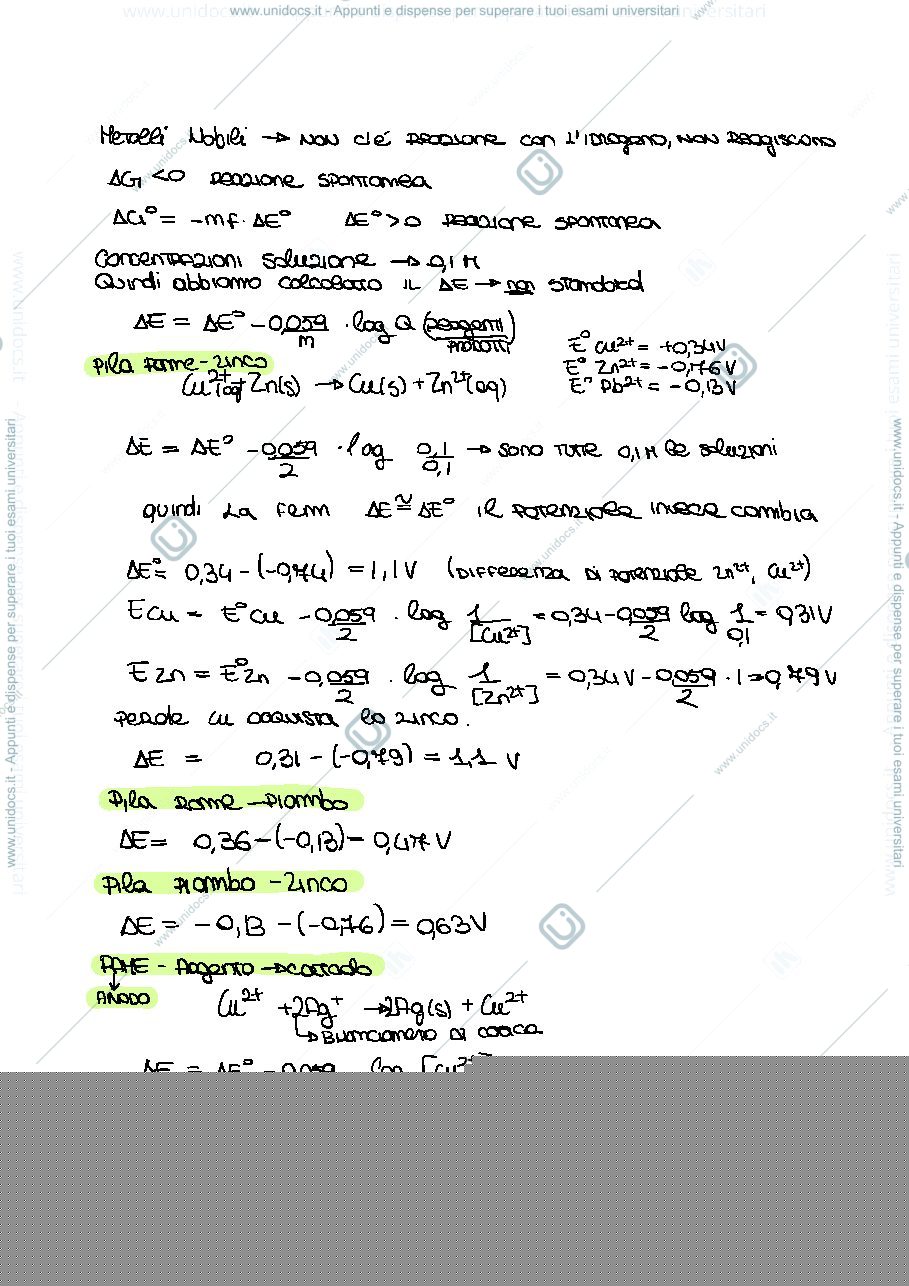 www.unidocs.it - Appunti e dispense per superare i tuoi esami universitari
Metalli Nobili → NON c'é REAZIONE con l'IDROGENO, NON REAGISCONO
ΔG < 0 REAZIONE SPONTANEA
ΔG° = -mf · ΔE° ΔE° > 0 REAZIONE SPONTANEA
CONCENTRAZIONI SOLUZIONE → 0,1 M
Quindi abbiamo calcolato IL ΔE → non standard
ΔE = ΔE° - 0,059/m · log Q (REAGENTI/PRODOTTI)
E° Cu2+ = +0,34V
E° Zn2+ = -0,76V
E° Pb2+ = -0,13V
Pila RAME-ZINCO
Cu2+(aq) + Zn(s) → Cu(s) + Zn2+(aq)
ΔE = ΔE° - 0,059/2 · log 0,1/0,1 → SONO TUTTE 0,1 M le soluzioni
quindi La Fem ΔE ≅ ΔE° il POTENZIALE invece cambia
ΔE° = 0,34 - (-0,74) = 1,1 V (DIFFERENZA DI POTENZIALE Zn2+, Cu2+)
E Cu = E°Cu - 0,059/2 · log 1/[Cu2+] = 0,34 - 0,059/2 log 1/0,1 = 0,31V
E Zn = E°Zn - 0,059/2 · log 1/[Zn2+] = 0,34V - 0,059/2 · 1 = 0,79V
PERDE Cu ACQUISTA lo ZINCO.
ΔE = 0,31 - (-0,79) = 1,1 V
Pila RAME - PIOMBO
ΔE = 0,36 - (-0,13) = 0,47 V
Pila PIOMBO - ZINCO
ΔE = -0,13 - (-0,76) = 0,63V
RAME - Argento → catodo
↓
ANODO
Cu2+ + 2Ag+ → 2Ag(s) + Cu2+
↳ BILANCIAMENTO DI CARICA
ΔE = ΔE° - 0,059 log [Cu2+]
www.unidocs.it - Appunti e dispense per superare i tuoi esami universitari
www.unidocs.it - Appunti e dispense per superare i tuoi esami universitari